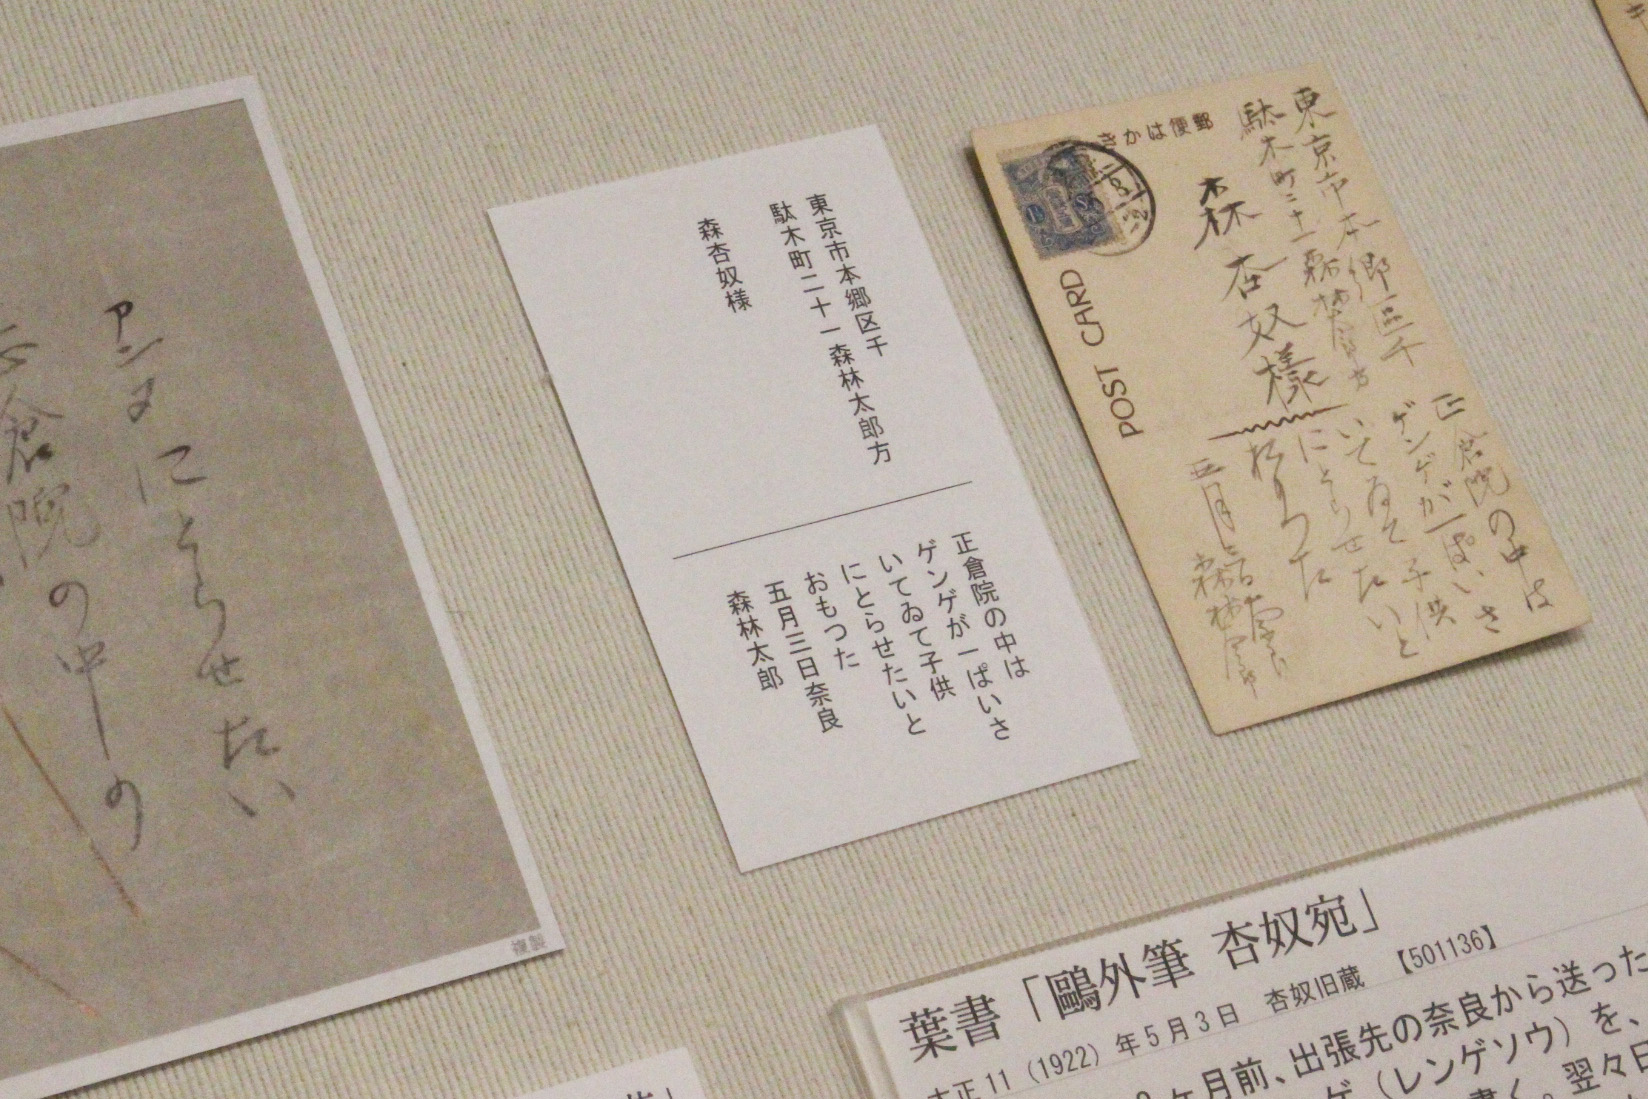 アンヌにとらせたい
倉院の中の
複製
東京市本郷区千
駄木町二十一森林太郎方
森杏奴様
正倉院の中は
ゲンゲが一ぱいさ
いてゐて子供
にとらせたいと
おもつた
五月三日奈良
森林太郎
郵便はかき
POST CARD
東京市本郷區千
駄木町二十一森林太郎方
森杏奴様
正倉院の中は
ゲンゲが一ぱいさ
いてゐて子供
にとらせたいと
おもつた
五月三日奈良
森林太郎
葉書「鷗外筆 杏奴宛」
大正11（1922）年5月3日 杏奴旧蔵 【501136】
ヶ月前、出張先の奈良から送った
ゲ（レンゲソウ）を、
書く。翌々日